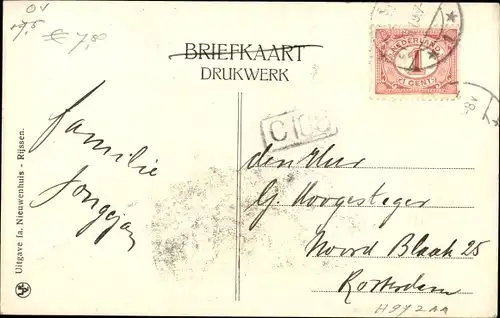 01
€ 7,80
BRIEFKAART
DRUKWERK
NEDERLAND
1
CENT
Familie
Jongejan
den Heer
G. Hoogesteger
Noord Blaak 25
Rotterdam
H972AA
Uitgave fa. Nieuwenhuis - Rijssen.